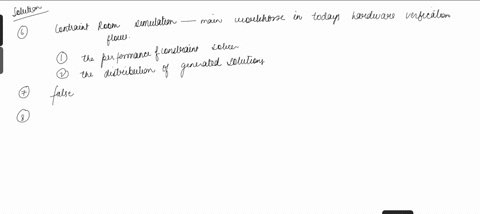 Solution
⑥ Contraint Room simulation — main workhorse in todays hardware verification
flows.
① the performance of constraint solver
② the distribution of generated solutions
⑦ false
⑧